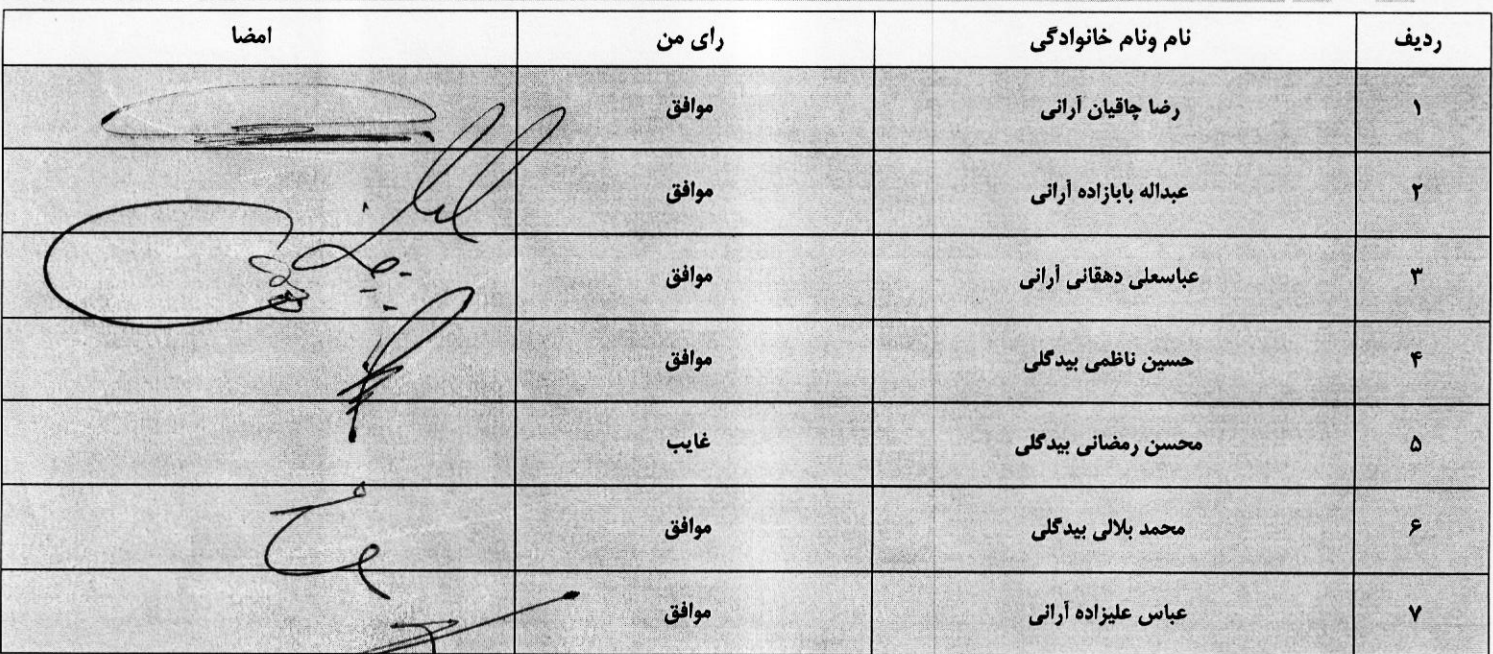 ردیف نام ونام خانوادگی رای من امضا
۱ رضا چاقیان آرانی موافق
۲ عبداله بابازاده آرانی موافق
۳ عباسعلی دهقانی آرانی موافق
۴ حسین ناظمی بیدگلی موافق
۵ محسن رمضانی بیدگلی غایب
۶ محمد بلالی بیدگلی موافق
۷ عباس علیزاده آرانی موافق